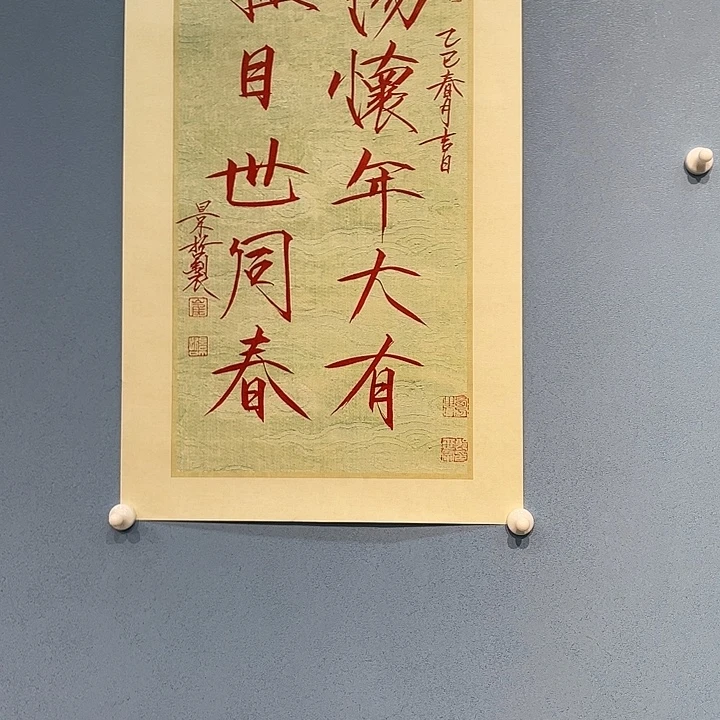 乙巳春月吉日
懷年大有
目世同春